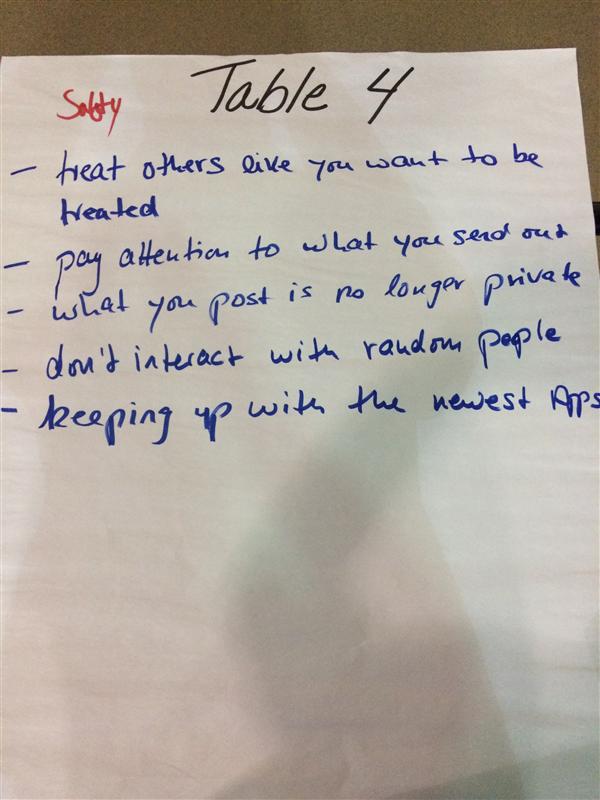 Safty
Table 4
- treat others like you want to be
treated
- pay attention to what you send out
- what you post is no longer private
- don't interact with random people
- keeping up with the newest Apps